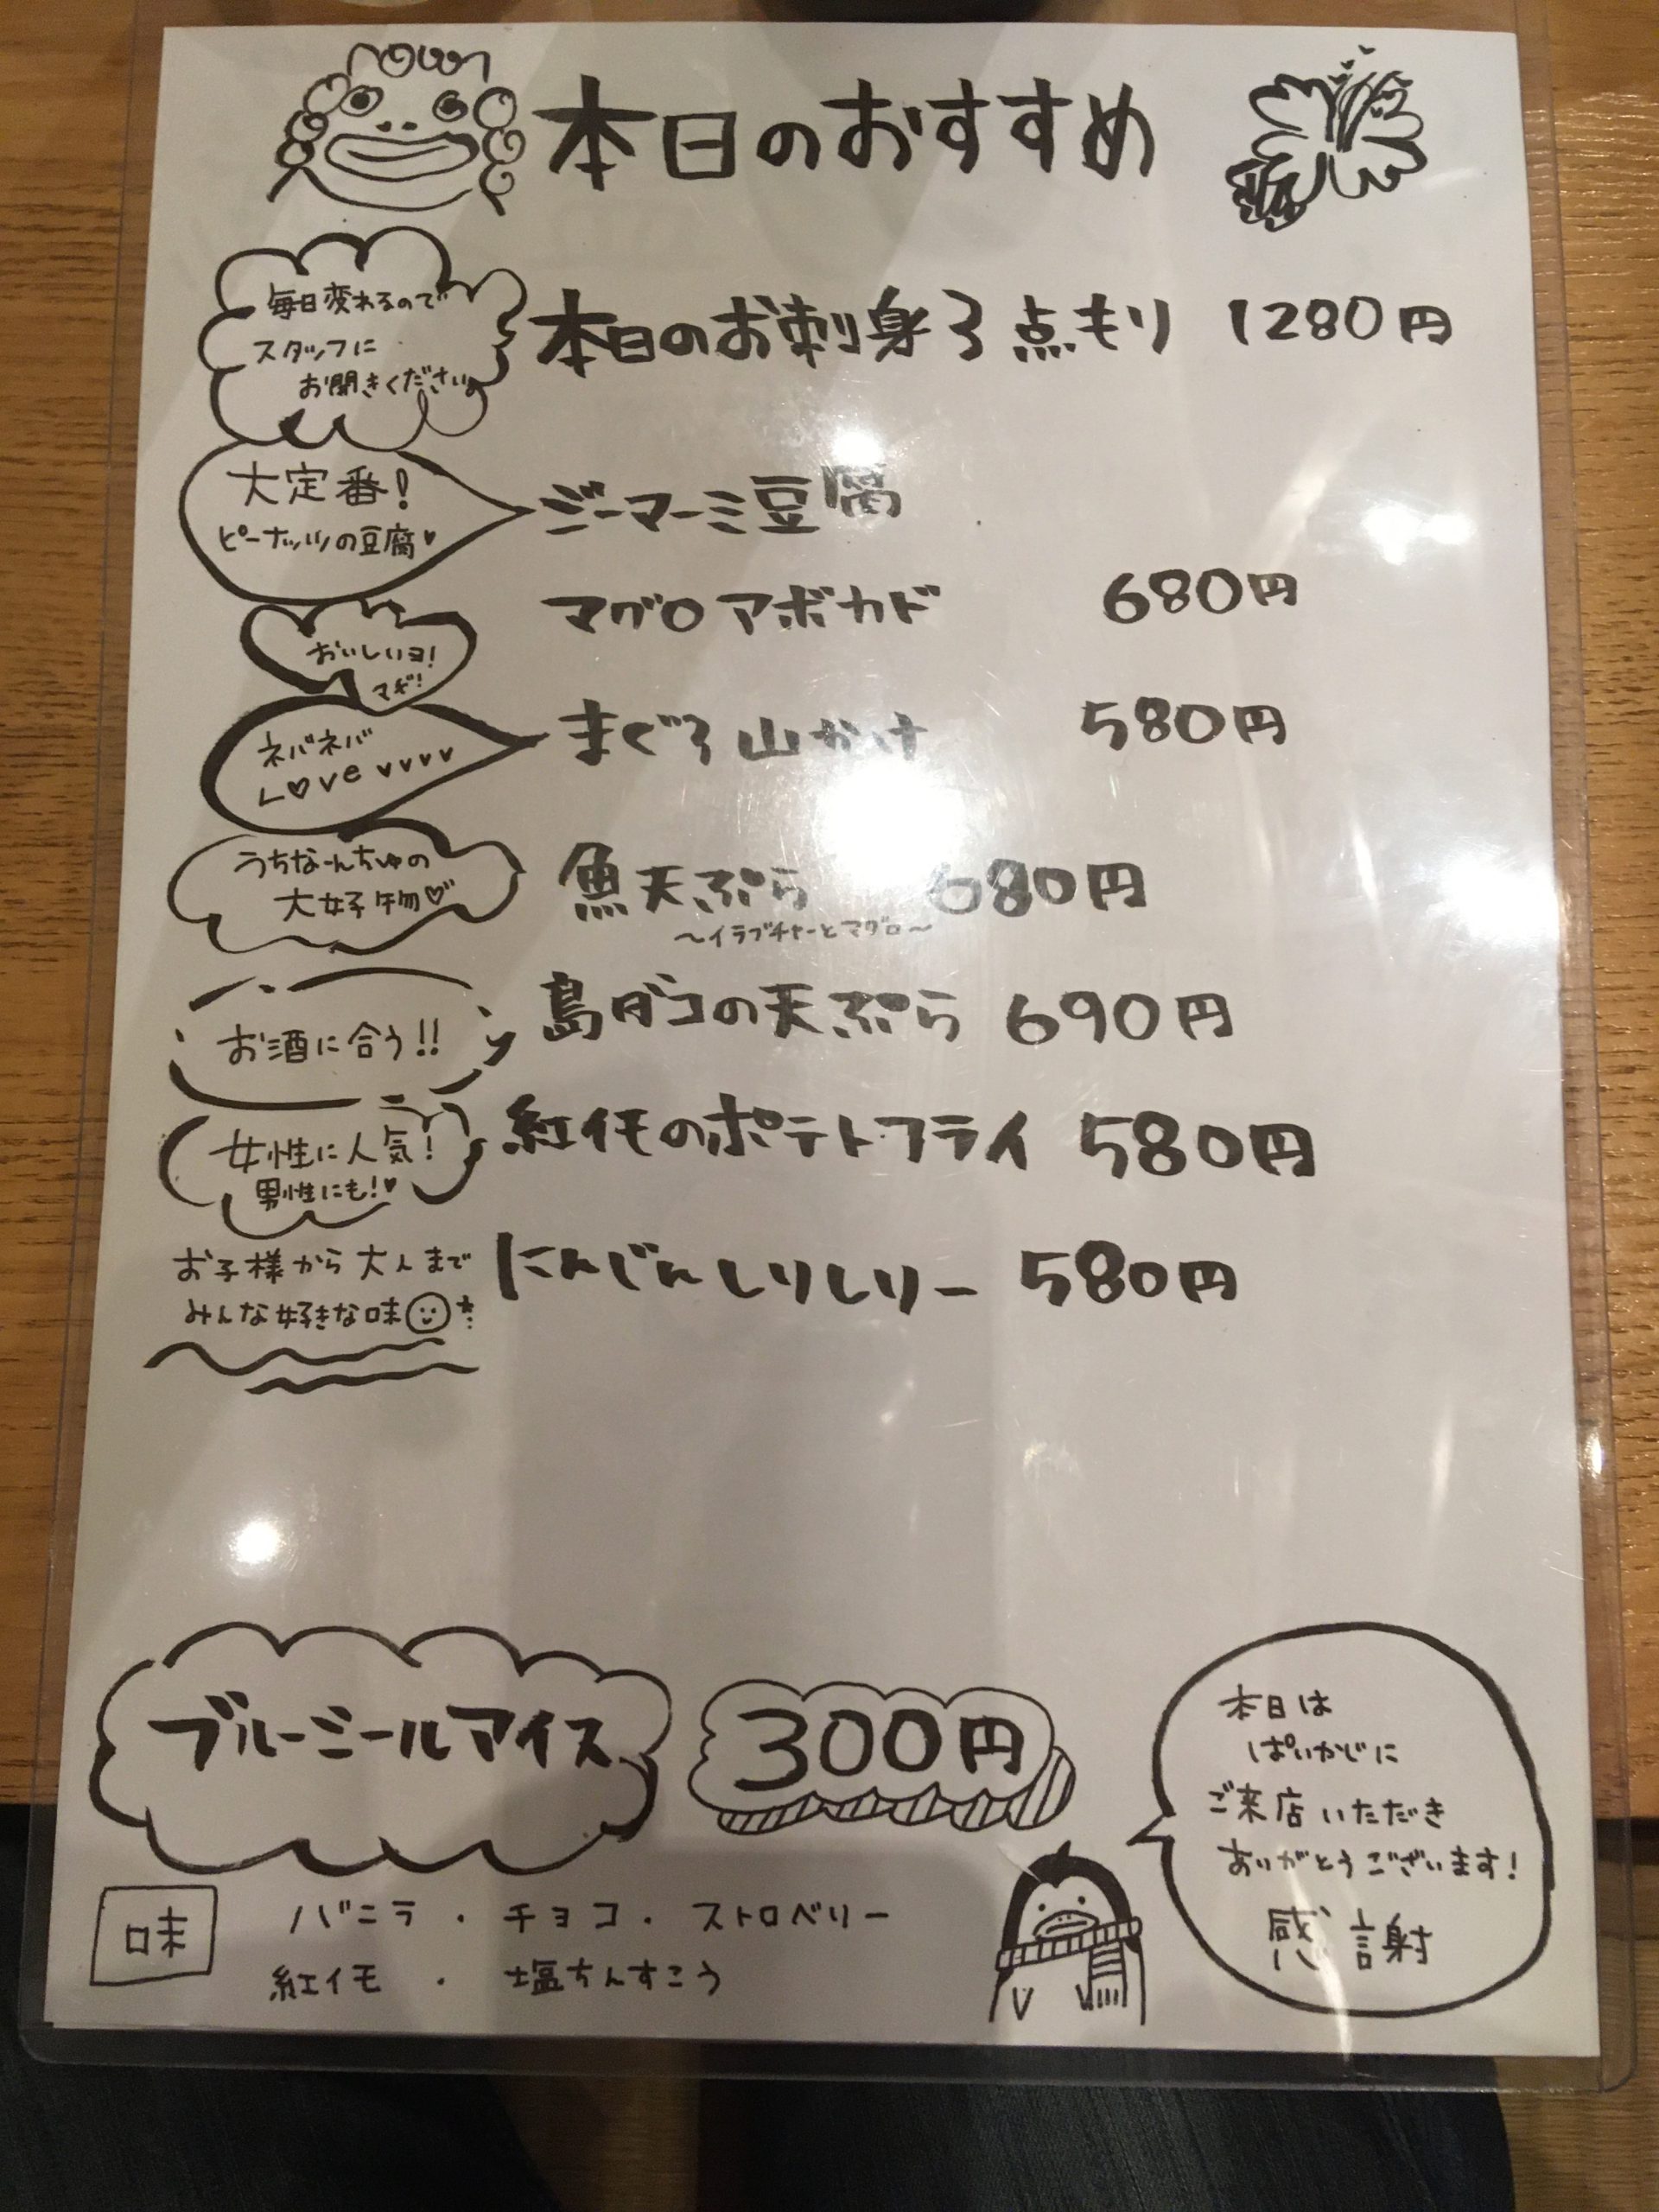 本日のおすすめ
毎日変わるので
スタッフに
お聞きください。
本日のお刺身3点もり 1280円
大定番!
ピーナッツの豆腐♥
ジーマーミ豆腐
マグロアボカド 680円
おいしいヨ!
マヂ!
ネバネバ
L♡ve ♥♥♥♥
まぐろ山かけ 580円
うちなーんちゅの
大好物♡
魚天ぷら 680円
〜イラブチャーとマグロ〜
お酒に合う!!
島ダコの天ぷら 690円
女性に人気!
男性にも!♥
紅イモのポテトフライ 580円
お子様から大人まで
みんな好きな味
にんじんしりしりー 580円
ブルーシールアイス 300円
味
バニラ・チョコ・ストロベリー
紅イモ・塩ちんすこう
本日は
ぱいかじに
ご来店いただき
ありがとうございます!
感謝